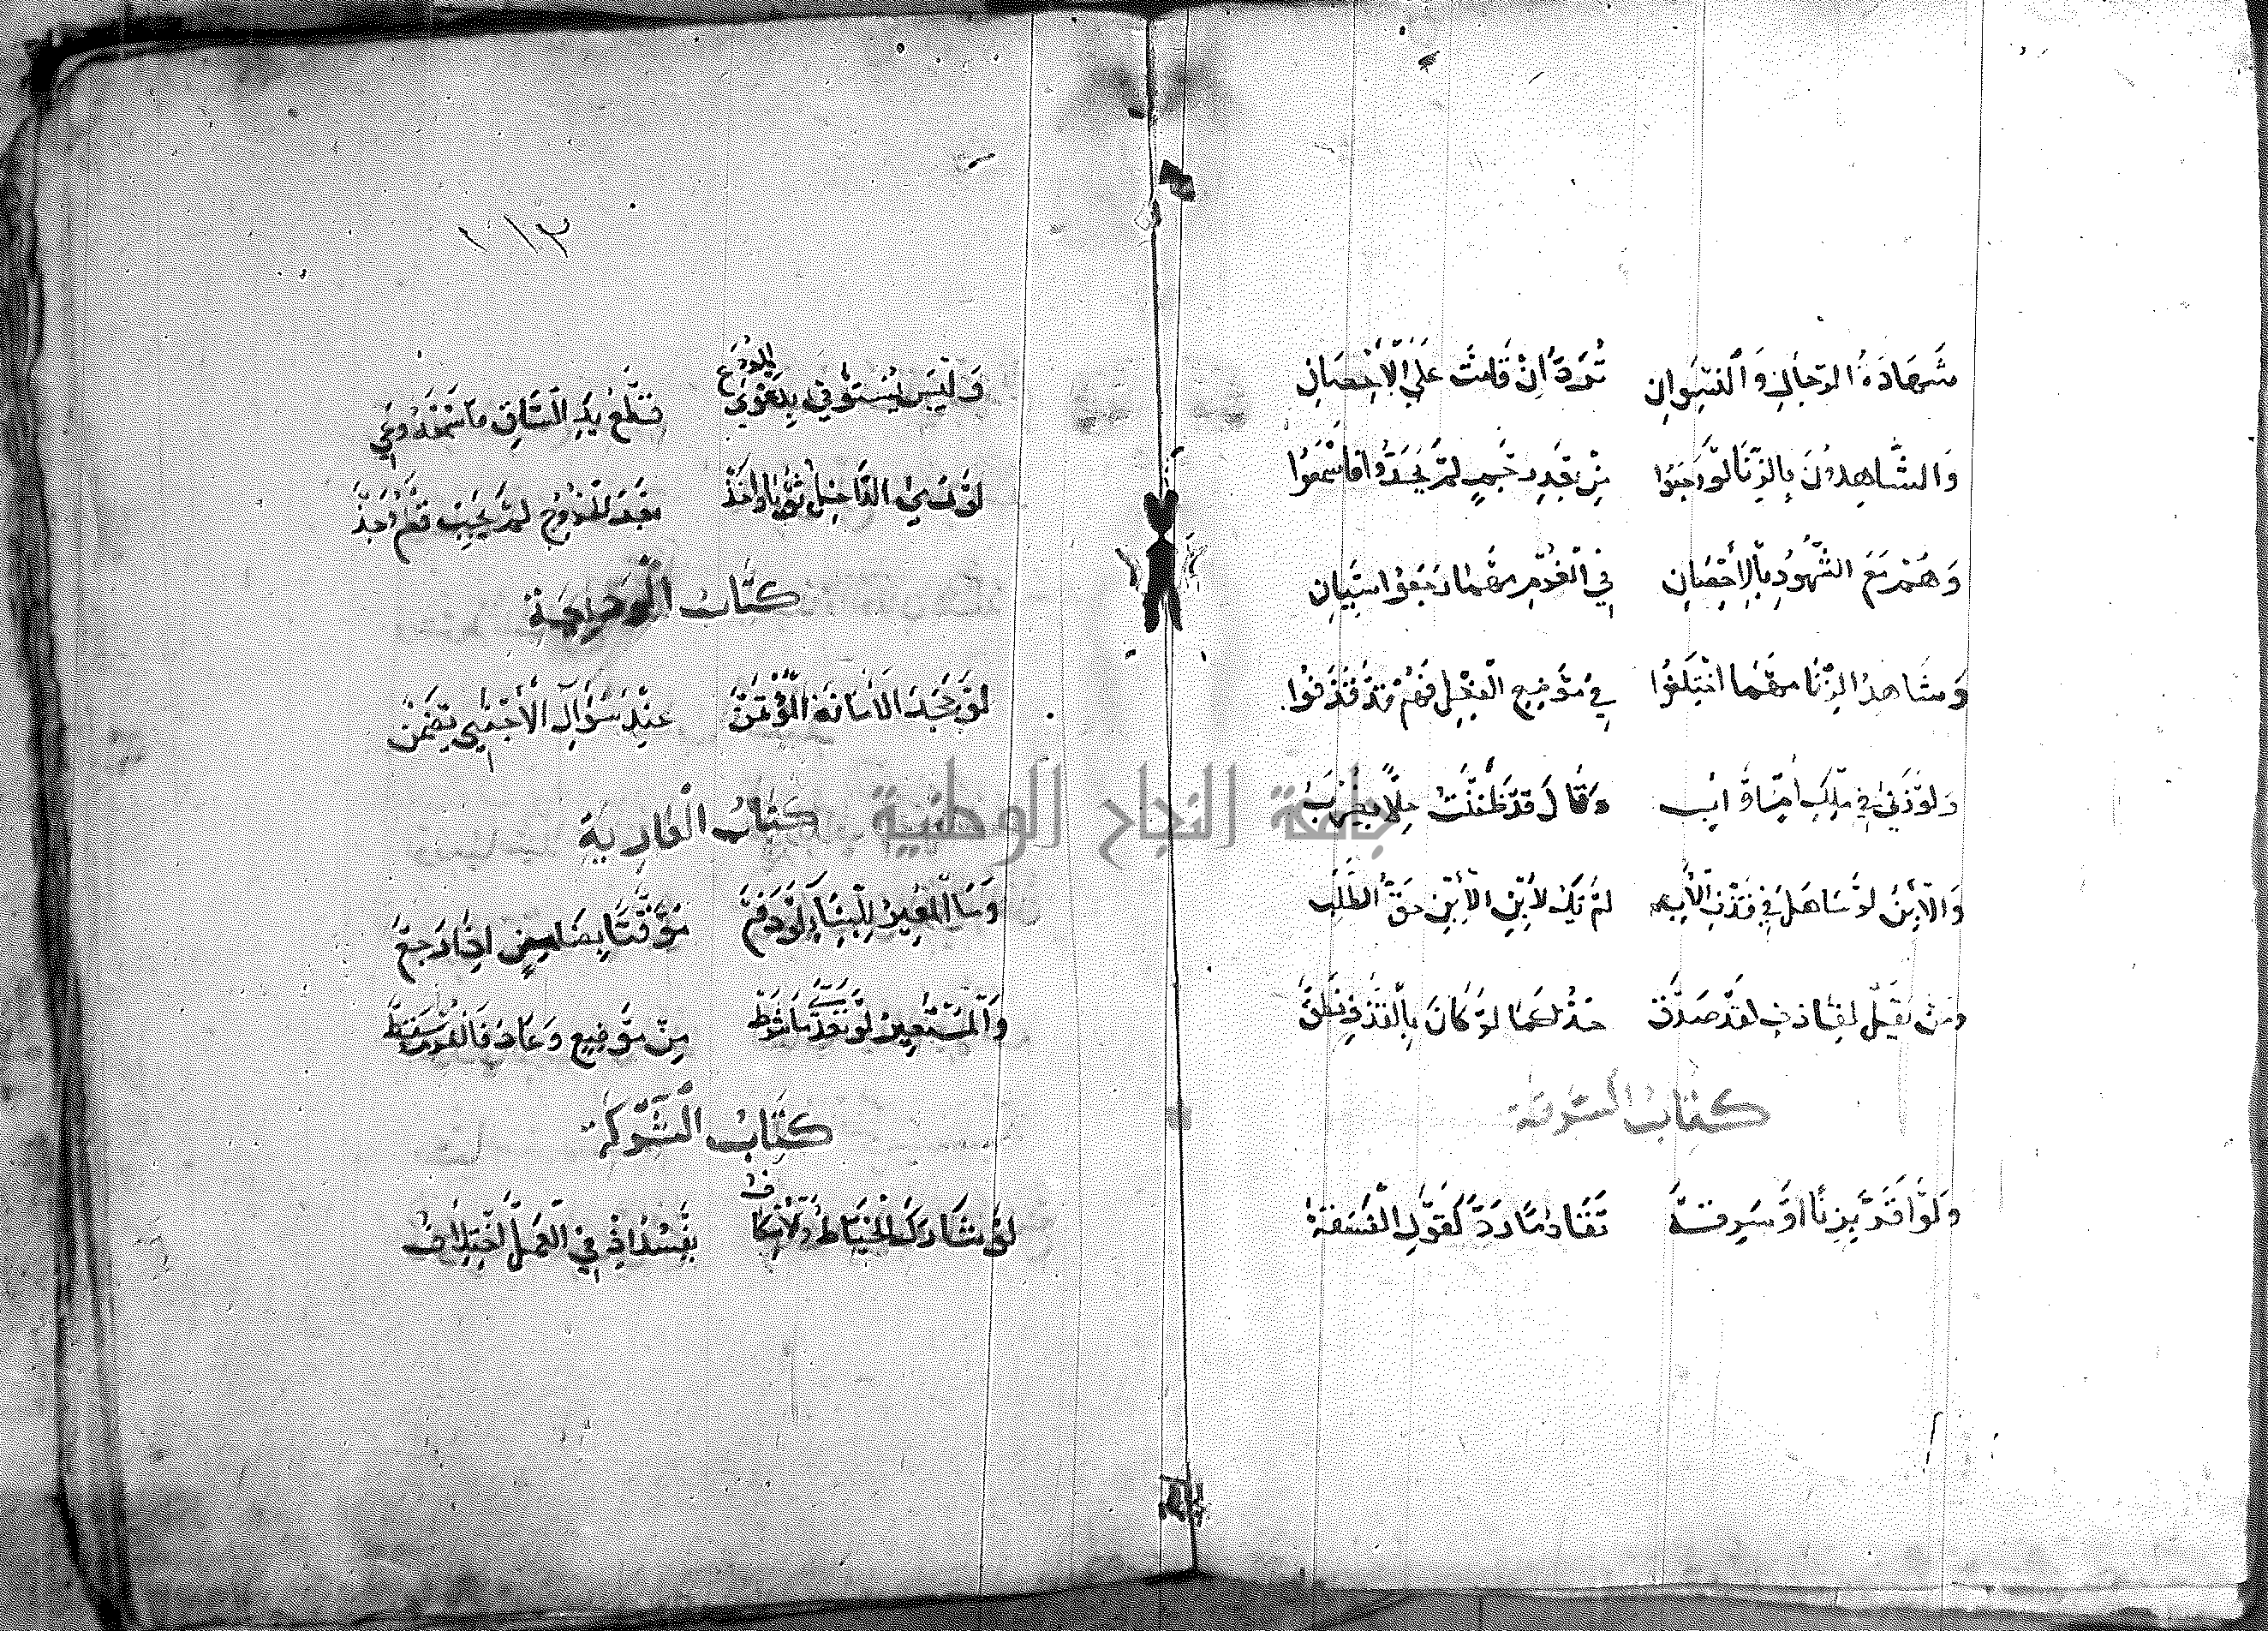 شَهَادَةُ الرِّجَالِ وَالنِّسْوَانِ تُرَدُّ إِنْ قَامَتْ عَلَى الْإِحْصَانِ
وَالشَّاهِدُونَ بِالزِّنَا لَوْ رَجَعُوا مِنْ بَعْدِ رَجْمٍ لَمْ يُحَدُّوا فَاسْمَعُوا
وَهُمْ مَعَ الشُّهُودِ بِالْإِحْصَانِ فِي الْغُرْمِ مَهْمَا رَجَعُوا سِيَّانِ
وَشَاهِدُ الزِّنَا مَهْمَا اخْتَلَفُوا فِي مَوْضِعِ الْفِعْلِ فَهُمْ قَدْ قَذَفُوا
وَلَوْ زَنَى فِي مِلْكِ أُمٍّ أَوْ أَبِ وَقَالَ قَدْ ظَنَنْتُ حِلًّا يُضْرَبُ
وَالْابْنُ لَوْ سَاهَلَ فِي قَذْفِ الْأَبِ لَمْ يَكُ لِابْنِ الْابْنِ حَقُّ الطَّلَبِ
وَمَنْ يَقُلْ لِقَاذِفٍ لَقَدْ صَدَقْ حُدَّ كَمَا لَوْ كَانَ بِالْقَذْفِ نَطَقْ
كتاب السرقة
وَلَوْ أَقَرَّ بِزِنًا أَوْ سَرِقَهْ تَقَادَمَا رُدَّ كَقَوْلِ الْفَسَقَهْ
١١٢
وَلَيْسَ يُسْتَوْفَى بِدَعْوَى الْمُودِعِ قَطْعُ يَدِ السَّارِقِ
لَوْ رَمَى الدَّاخِلُ ثَوْبًا وَأَخَذْ بَعْدَ الْخُرُوجِ لَمْ يَجِبْ
كتاب الوديعة
لَوْ جَحَدَ الْأَمَانَةَ الْمُؤْتَمَنْ عِنْدَ سُؤَالِ الْأَجْنَبِي لَمْ يَضْمَنْ
كتاب العارية
وَالْمُعِيرُ لِلْبِنَاءِ لَوْ دَفَعْ مُؤَقَّتًا يَضْمَنُ إِذَا رَجَعْ
وَالْمُسْتَعِيرُ لَوْ تَعَدَّى مَا شُرِطْ مِنْ مَوْضِعٍ وَعَادَ
كتاب الشركة
لَوْ شَارَكَ الْخَيَّاطُ يَفْسُدْ إِذْ فِي الْعَمَلِ اخْتِلَافُ
جامعة النجاح الوطنية